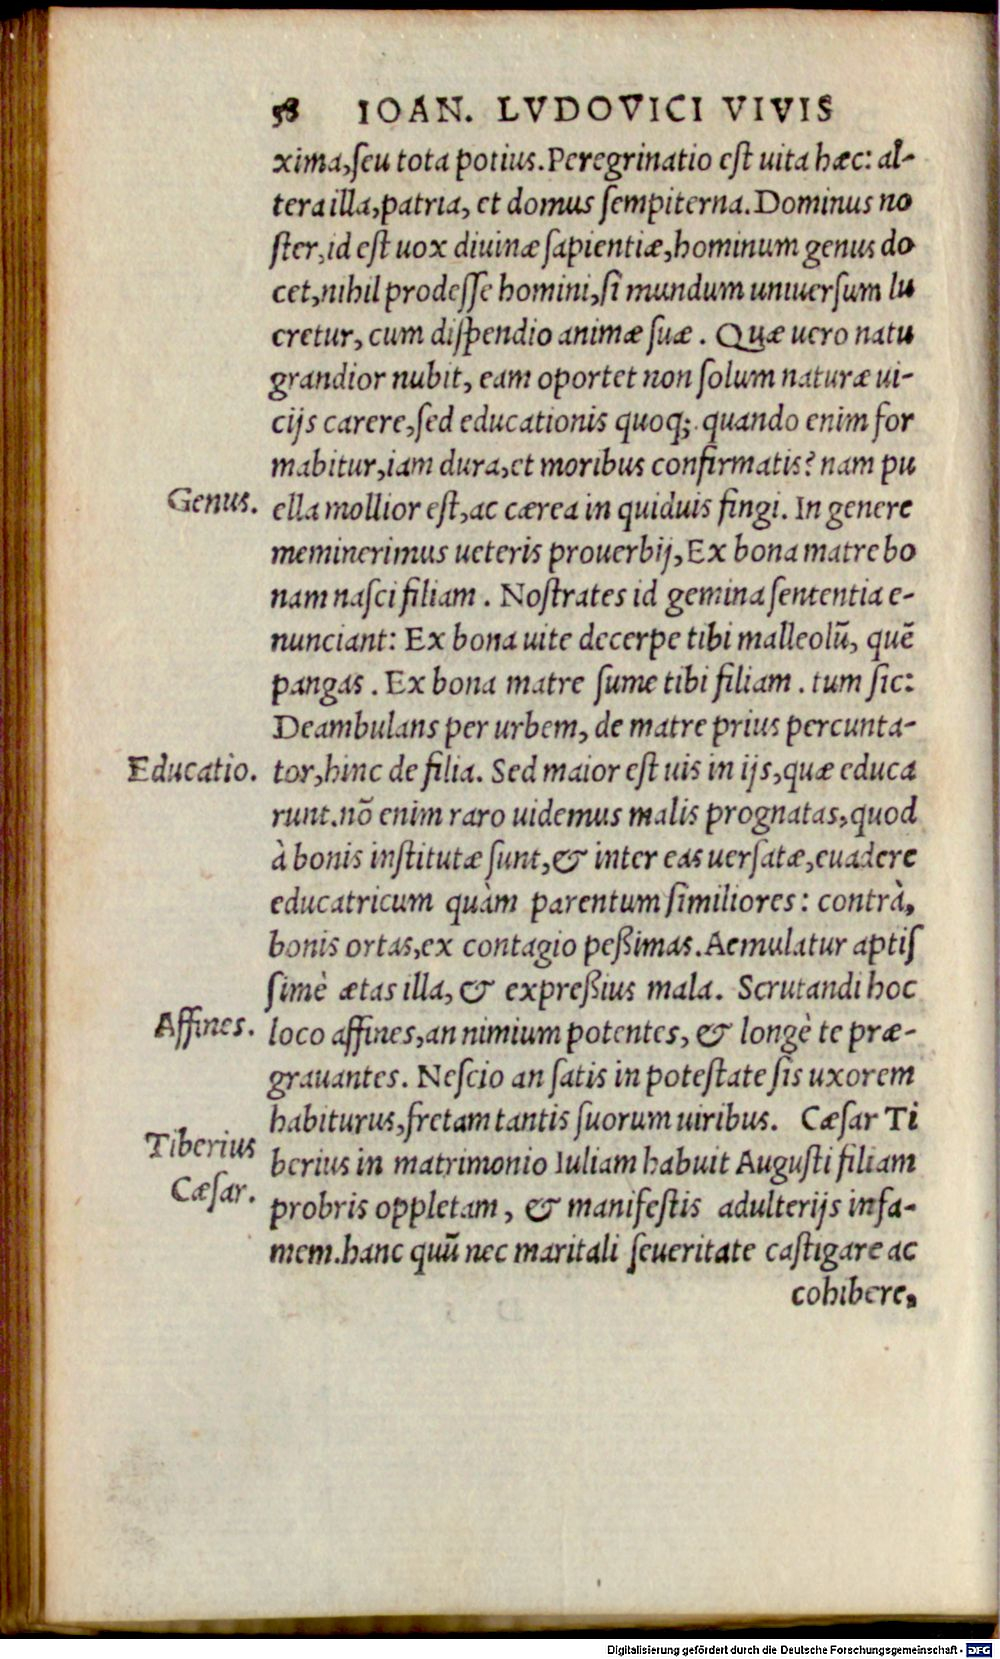 58 IOAN. LVDOVICI VIVIS
xima,ſeu tota potius.Peregrinatio eſt uita hæc: al-
tera illa,patria, et domus ſempiterna.Dominus no
ſter,id eſt uox diuinæ ſapientiæ,hominum genus do
cet,nihil prodeſſe homini,ſi mundum uniuerſum lu
cretur, cum diſpendio animæ ſuæ . Quæ uero natu
grandior nubit, eam oportet non ſolum naturæ ui-
cijs carere,ſed educationis quoq;. quando enim for
mabitur,iam dura,et moribus confirmatis? nam pu
Genus. ella mollior eſt,ac cærea in quiduis fingi. In genere
meminerimus ueteris prouerbij, Ex bona matre bo
nam naſci filiam . Noſtrates id gemina ſententia e-
nunciant: Ex bona uite decerpe tibi malleolũ, quẽ
pangas . Ex bona matre ſume tibi filiam . tum ſic:
Deambulans per urbem, de matre prius percunta-
Educatio. tor,hinc de filia. Sed maior eſt uis in ijs,quæ educa
runt.nõ enim raro uidemus malis prognatas,quod
à bonis inſtitutæ ſunt,& inter eas uerſatæ,euadere
educatricum quàm parentum ſimiliores: contrà,
bonis ortas,ex contagio peßimas.Aemulatur aptiſ
ſimè ætas illa, & expreßius mala. Scrutandi hoc
Affines. loco affines,an nimium potentes, & longè te præ-
grauantes. Neſcio an ſatis in poteſtate ſis uxorem
habiturus,fretam tantis ſuorum uiribus. Cæſar Ti
Tiberius berius in matrimonio Iuliam habuit Auguſti filiam
Cæſar. probris oppletam, & manifeſtis adulterijs infa-
mem.hanc quũ nec maritali ſeueritate caſtigare ac
cohibere,
Digitalisierung gefördert durch die Deutsche Forschungsgemeinschaft - DFG